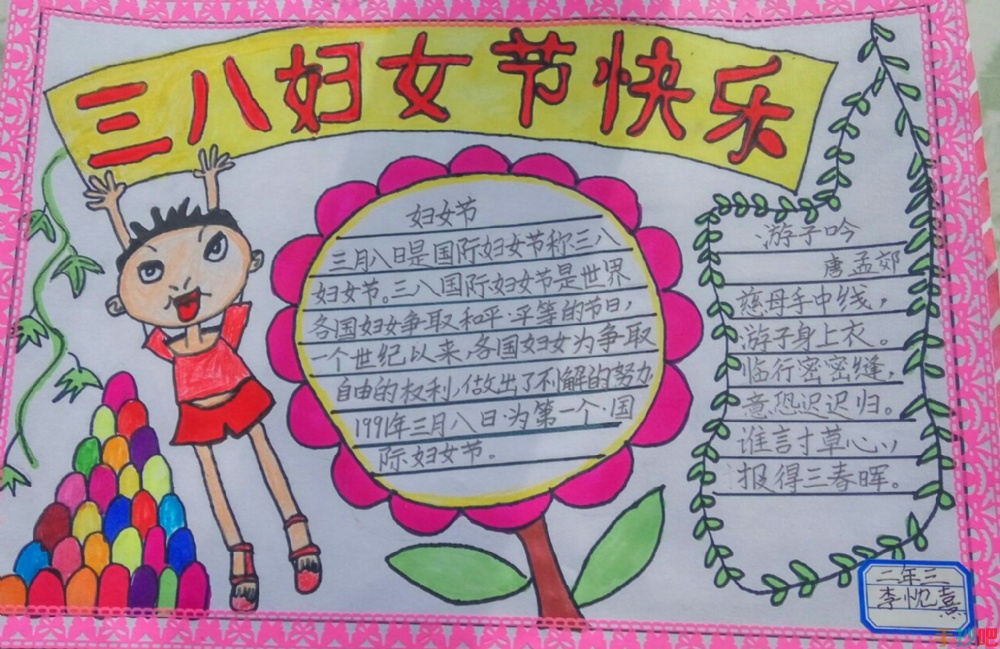 三八妇女节快乐
妇女节
三月八日是国际妇女节称三八
妇女节。三八国际妇女节是世界
各国妇女争取和平·平等的节日,
一个世纪以来,各国妇女为争·取
自由的权利,做出了不懈的努力
1991年三月八日·为第一个·国
际妇女节。
游子吟
唐孟郊
慈母手中线,
游子身上衣。
临行密密缝,
意恐迟迟归。
谁言寸草心,
报得三春晖。
二年三
李忱熹